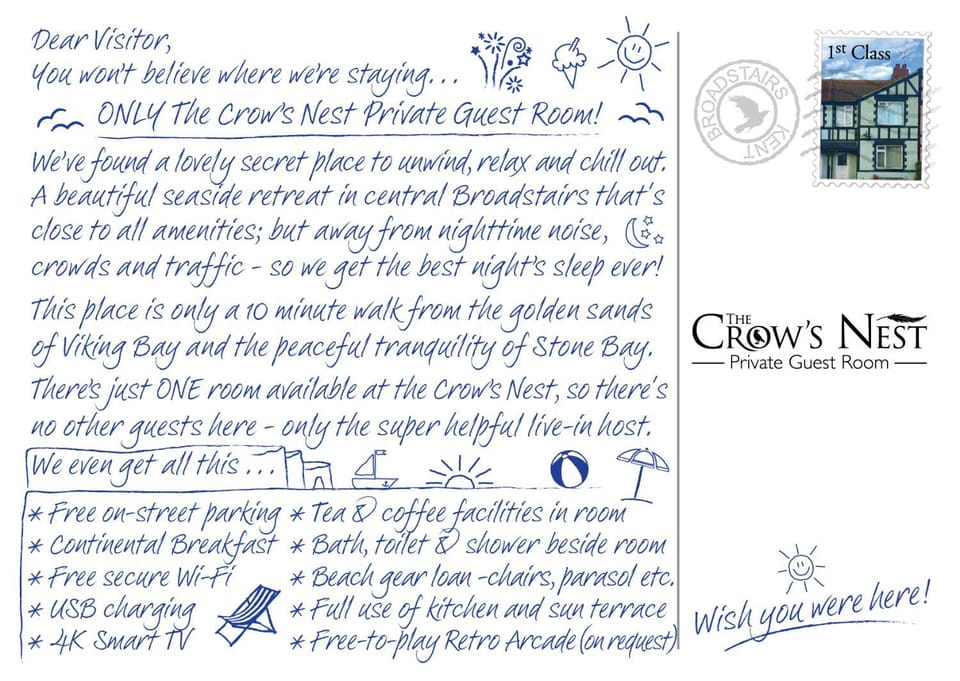 Dear Visitor,
You won't believe where we're staying...
ONLY The Crow's Nest Private Guest Room!
We've found a lovely secret place to unwind, relax and chill out.
A beautiful seaside retreat in central Broadstairs that's
close to all amenities; but away from nighttime noise,
crowds and traffic - so we get the best night's sleep ever!
This place is only a 10 minute walk from the golden sands
of Viking Bay and the peaceful tranquility of Stone Bay.
There's just ONE room available at the Crow's Nest, so there's
no other guests here - only the super helpful live-in host.
We even get all this ...
* Free on-street parking
* Continental Breakfast
* Free secure Wi-Fi
* USB charging
* 4K Smart TV
* Tea & coffee facilities in room
* Bath, toilet & shower beside room
* Beach gear loan -chairs, parasol etc.
* Full use of kitchen and sun terrace
* Free-to-play Retro Arcade (on request)
BROADSTAIRS
KENT
1st Class
THE
CROW'S NEST
Private Guest Room
Wish you were here!